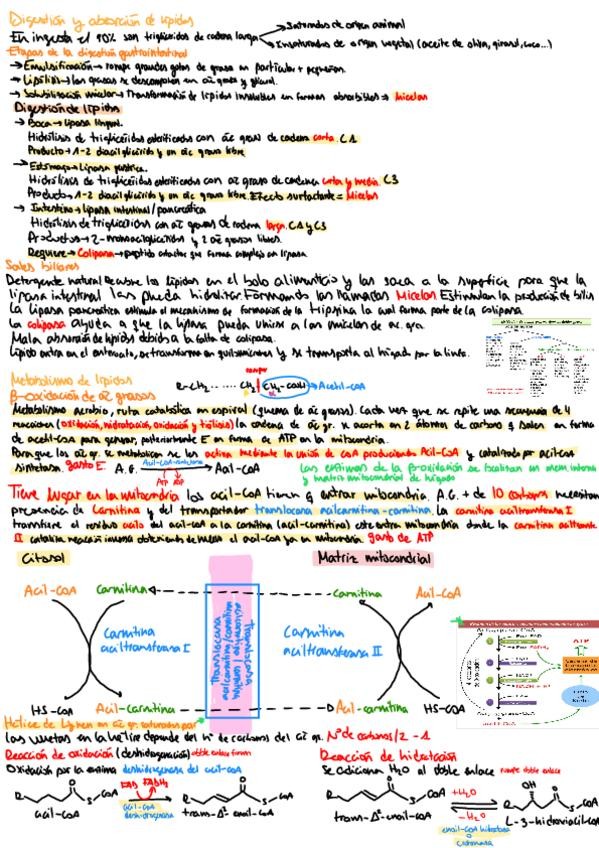 Digestión y absorción de lípidos
En ingesta el 90% son triglicéridos de cadena larga
Saturados de origen animal
Insaturados de origen vegetal (aceite de oliva, girasol, coco...)
Etapas de la digestión gastrointestinal
→ Emulsificación → rompe grandes gotas de grasa en partículas + pequeñas.
→ Lipólisis → las grasas se descomponen en ác graso y glicerol.
→ Solubilización micelar → Transformación de lípidos insolubles en formas absorbibles → Micelas
Digestión de lípidos
→ Boca → lipasa lingual.
Hidrólisis de triglicéridos esterificados con ác graso de cadena corta. C1
Producto → 1-2 diacilglicérido y un ác graso libre
→ Estómago → Lipasa gástrica.
Hidrólisis de triglicéridos esterificados con ác graso de cadena corta y media. C3
Producto → 1-2 diacilglicérido y un ác graso libre. Efecto surfactante = Micelas
→ Intestino → lipasa intestinal/pancreática
Hidrólisis de triglicéridos con ác grasos de cadena larga. C1 y C3
Productos → 2-monoacilglicéridos y 2 ác grasos libres.
Requiere → Colipasa → péptido que forma complejo con lipasa
Sales biliares
Detergente natural Recubre los lípidos en el bolo alimenticio y las saca a la superficie para que la
lipasa intestinal las pueda hidrolizar. Formando las llamadas Micelas Estimulan la producción de bilis
La lipasa pancreática estimula el mecanismo de formación de la tripsina la cual forma parte de la colipasa.
La colipasa ayuda a que la lipasa pueda unirse a las micelas de ác. gra.
Mala absorción de lípidos debidos a la falta de colipasa.
Lípido entra en el enterocito, se transforma en quilomicrones y se transporta al hígado por la linfa.
Metabolismo de lípidos
R-CH2 ...... CH2 CH2-COOH → Acetil-CoA
β-oxidación de ác grasos
Metabolismo aerobio, ruta catabólica en espiral (quema de ác grasos). Cada vez que se repite una secuencia de 4
reacciones (oxidación, hidratación, oxidación y tiólisis) la cadena de ác gr. se acorta en 2 átomos de carbono y salen en forma
de acetil-CoA para generar, posteriormente E en forma de ATP en la mitocondria.
Para que los ác gr. se metabolicen se les activa mediante la unión de CoA produciendo Acil-CoA y catalizada por acilCoA
sintetasa. gasto E. A.G. Acil-CoA-sintetasa Acil-CoA
ATP ADP
Las enzimas de la β-oxidación se localizan en mem interna
y matriz mitocondrial de hígado
Tiene lugar en la mitocondria los acil-CoA tienen q entrar mitocondria. A.G. + de 10 carbonos necesitan
presencia de Carnitina y del transportador translocasa acilcarnitina-carnitina. La carnitina aciltransferasa I
transfiere el residuo acilo del acil-CoA a la carnitina (acil-carnitina) este entra mitocondria donde la carnitina aciltransfe
II cataliza reacción inversa obteniendo de nuevo el acil-CoA ya en mitocondria. gasto de ATP
Citosol
Matriz mitocondrial
Acil-CoA Carnitina
Carnitina Acil-CoA
Carnitina aciltransferasa I
Translocasa acilcarnitina/carnitina
Carnitina aciltransferasa II
HS-CoA Acil-carnitina
Acil-carnitina HS-CoA
Hélice de Lynen en ác gr. saturados par
Las vueltas en la hélice depende del nº de carbonos del ác gr. Nº de carbonos/2 - 1
Reacción de oxidación (deshidrogenación) doble enlace forman
Oxidación por la enzima deshidrogenasa del acil-CoA
FAD FADH2
acil-CoA
deshidrogenasa
acil-CoA
trans-Δ²-enoil-CoA
Reacción de hidratación
Se adicionan H2O al doble enlace rompe doble enlace
+H2O
-H2O
enoil-CoA hidratasa
trans-Δ²-enoil-CoA
L-3-hidroxiacil-CoA